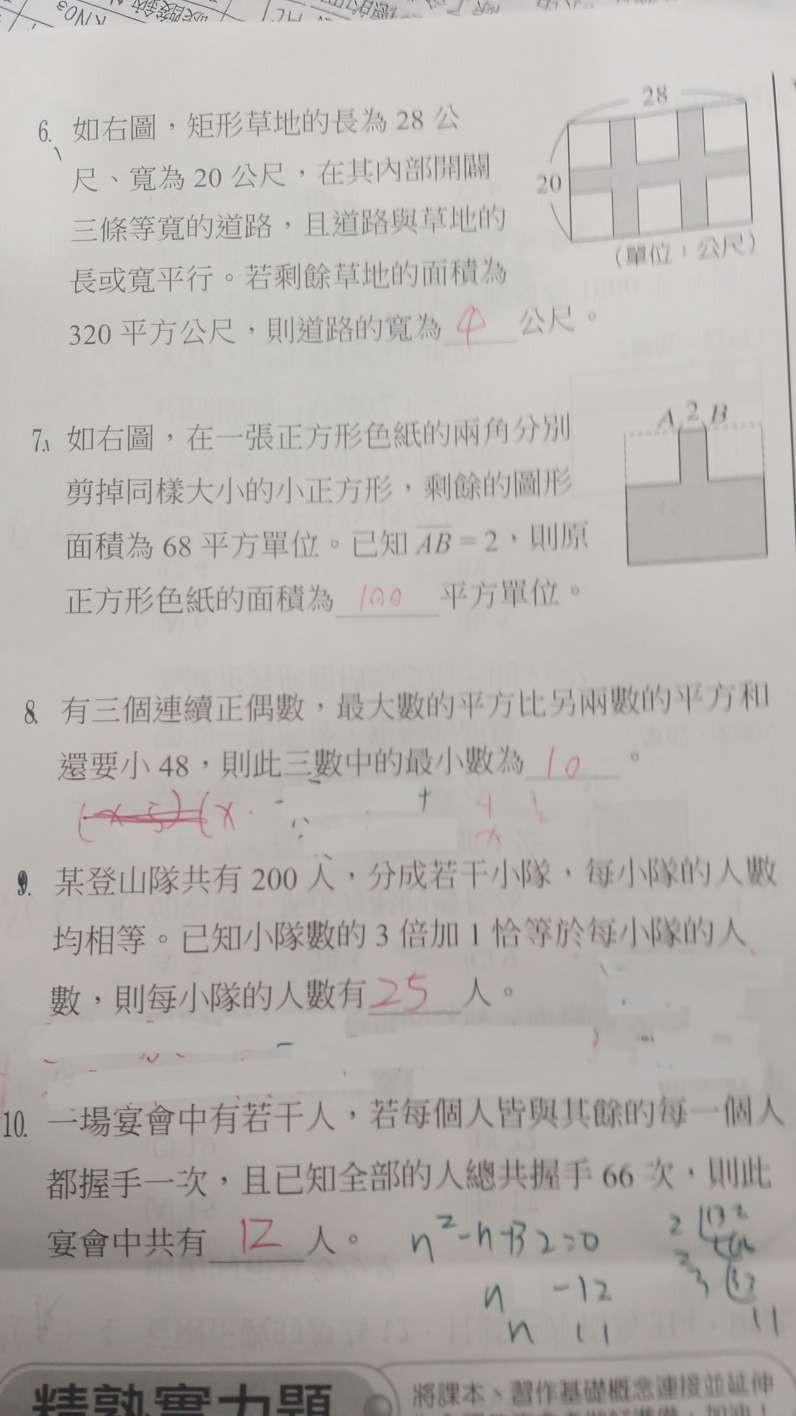 28
6. 如右圖，矩形草地的長為 28 公
尺、寬為 20 公尺，在其內部開闢
20
三條等寬的道路，且道路與草地的
（單位：公尺）
長或寬平行。若剩餘草地的面積為
320 平方公尺，則道路的寬為 4 公尺。
A 2 B
7. 如右圖，在一張正方形色紙的兩角分別
剪掉同樣大小的小正方形，剩餘的圖形
面積為 68 平方單位。已知 AB = 2，則原
正方形色紙的面積為 100 平方單位。
8. 有三個連續正偶數，最大數的平方比另兩數的平方和
還要小 48，則此三數中的最小數為 10 。
9. 某登山隊共有 200 人，分成若干小隊，每小隊的人數
均相等。已知小隊數的 3 倍加 1 恰等於每小隊的人
數，則每小隊的人數有 25 人。
10. 一場宴會中有若干人，若每個人皆與其餘的每一個人
都握手一次，且已知全部的人總共握手 66 次，則此
宴會中共有 12 人。
n -12
n 11
精熟實力題
將課本、習作基礎概念連接並延伸